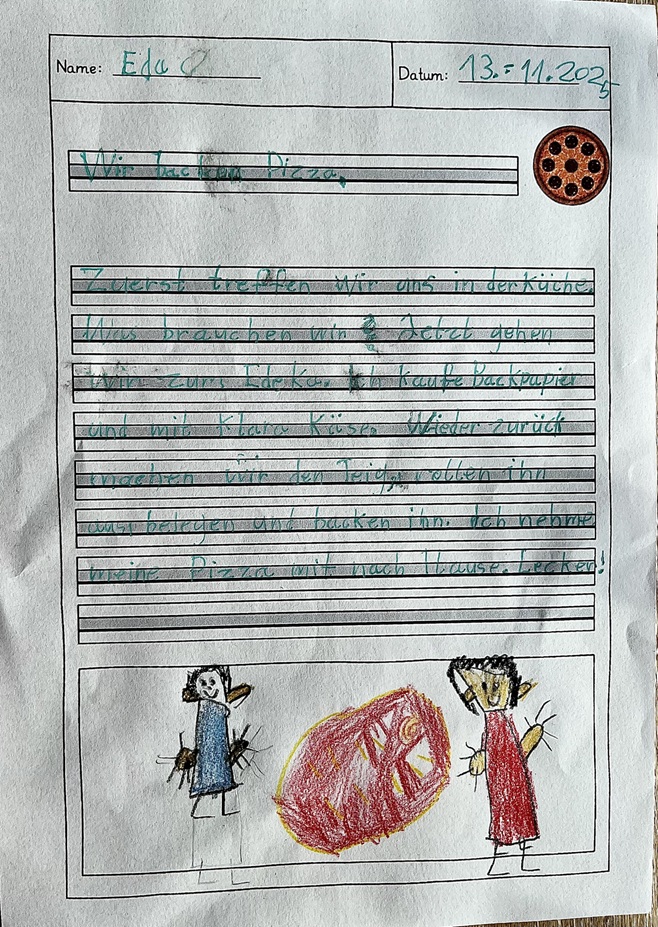 Name: Eda
Datum: 13.-11.2025
Wir backen Pizza.
Zuerst treffen wir uns in der Küche.
Was brauchen wir? Jetzt gehen
wir zum Edeka. Ich kaufe Backpapier
und mit Klara Käse. Wieder zurück
machen wir den Teig, rollen ihn
aus, belegen und backen ihn. Ich nehme
meine Pizza mit nach Hause. Lecker!